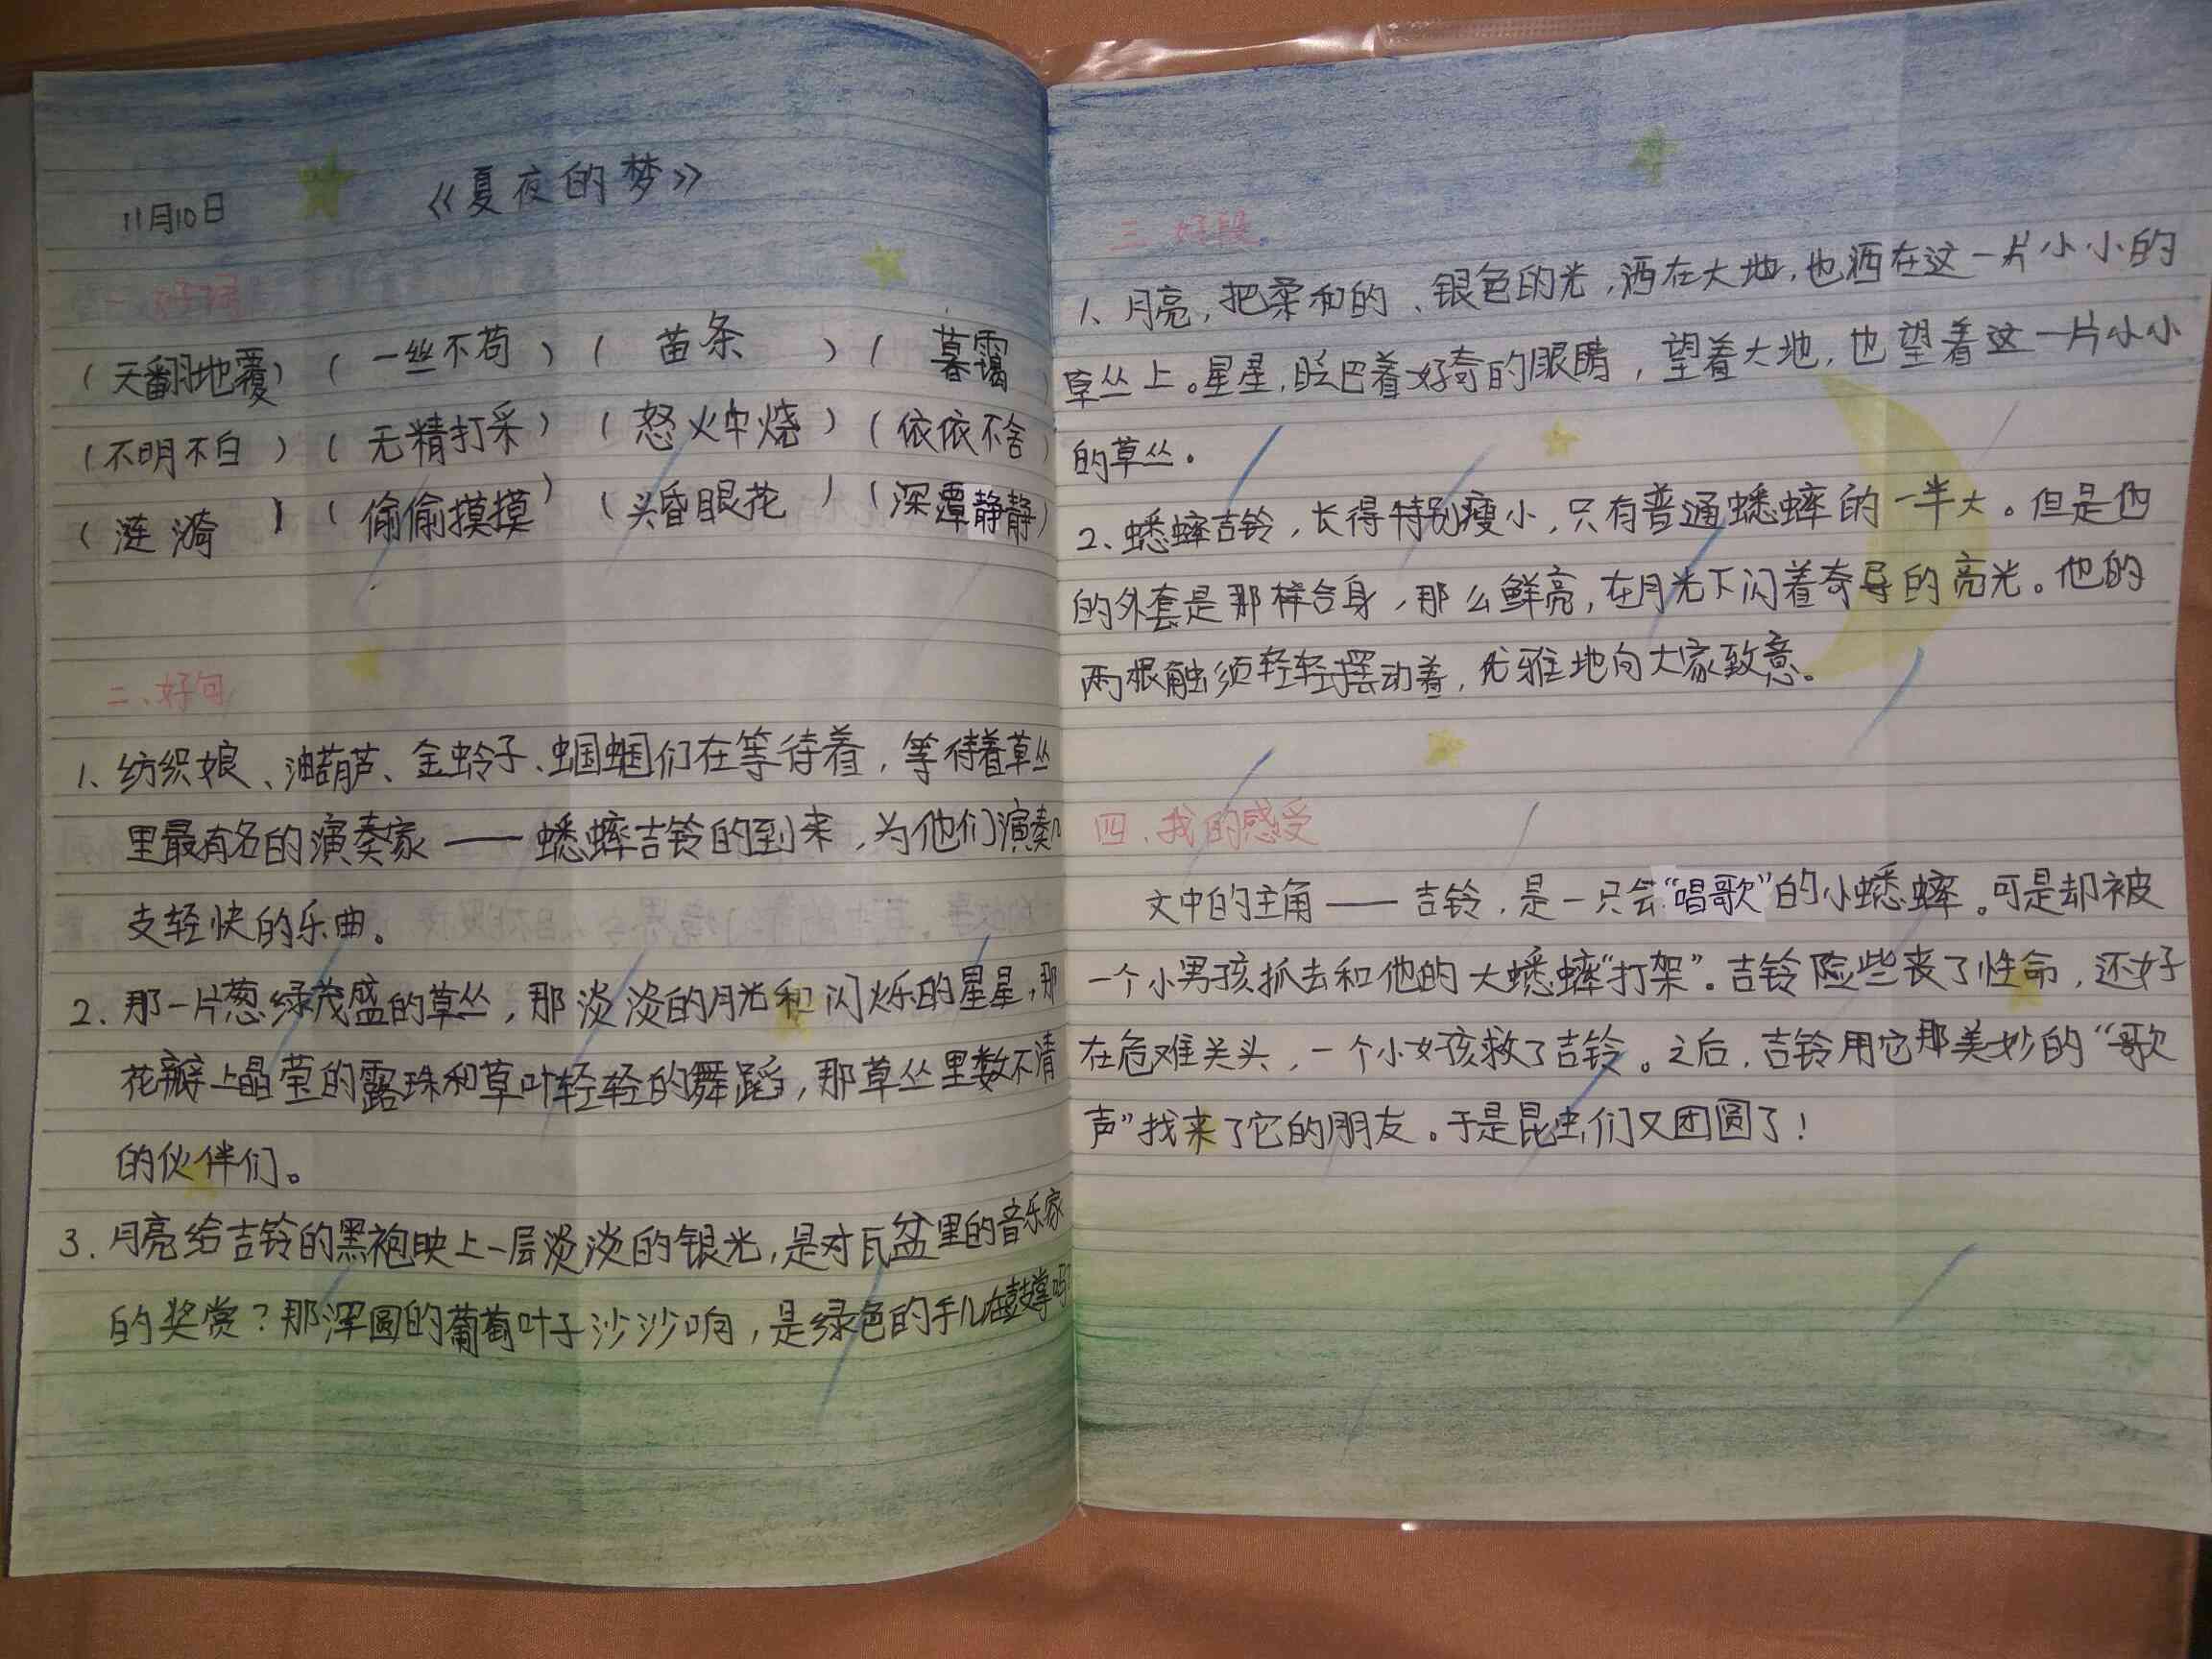 11月10日
《夏夜的梦》
一、好词
（天翻地覆）（一丝不苟）（苗条）（暮霭）
（不明不白）（无精打采）（怒火中烧）（依依不舍）
（涟漪）（偷偷摸摸）（头昏眼花）（深潭静静）
二、好句
1、纺织娘、油葫芦、金蛉子、蝈蝈们在等待着，等待着草丛
里最有名的演奏家——蟋蟀吉铃的到来，为他们演奏几
支轻快的乐曲。
2、那一片葱绿茂盛的草丛，那淡淡的月光和闪烁的星星，那
花瓣上晶莹的露珠和草叶轻轻的舞蹈，那草丛里数不清
的伙伴们。
3、月亮给吉铃的黑袍映上一层淡淡的银光，是对瓦盆里的音乐家
的奖赏？那浑圆的葡萄叶子沙沙响，是绿色的手儿在鼓掌吗？
三、好段
1、月亮，把柔和的、银色的光，洒在大地，也洒在这一片小小的
草丛上。星星，眨巴着好奇的眼睛，望着大地，也望着这一片小小
的草丛。
2、蟋蟀吉铃，长得特别瘦小，只有普通蟋蟀的一半大。但是他
的外套是那样合身，那么鲜亮，在月光下闪着奇异的亮光。他的
两根触须轻轻摆动着，优雅地向大家致意。
四、我的感受
文中的主角——吉铃，是一只会“唱歌”的小蟋蟀。可是却被
一个小男孩抓去和他的大蟋蟀“打架”。吉铃险些丧了性命，还好
在危难关头，一个小女孩救了吉铃。之后，吉铃用它那美妙的“歌
声”找来了它的朋友。于是昆虫们又团圆了！